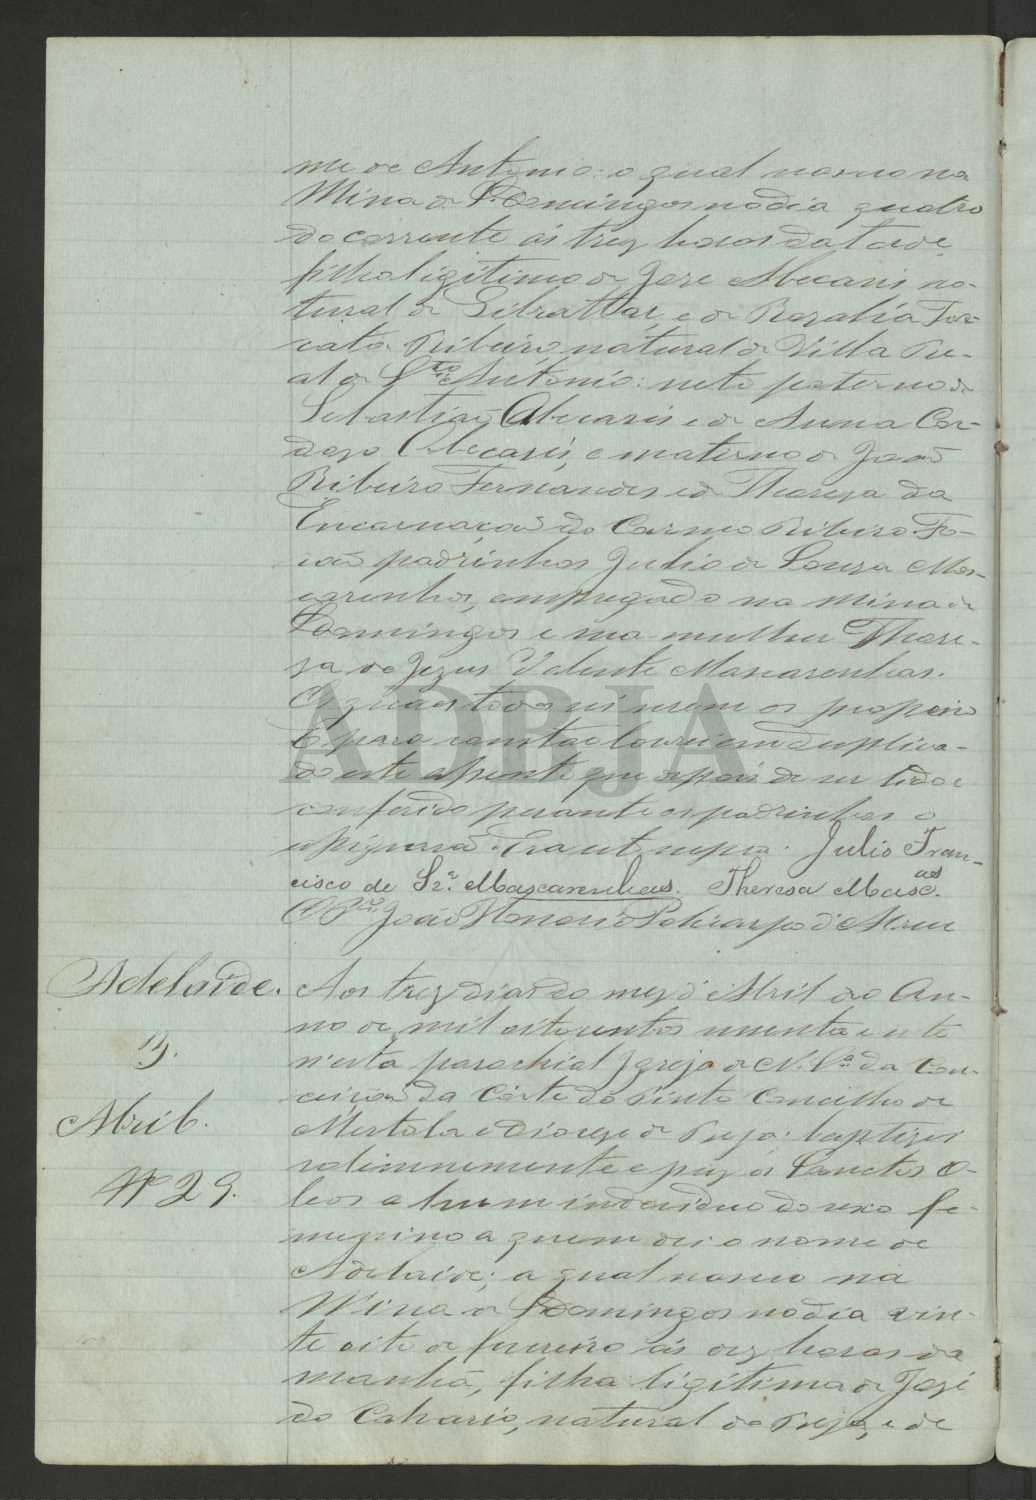 me de Antonio: o qual nasceo na
Mina de S. Domingos no dia quatro
do corrente ás trez horas da tarde,
filho ligitimo de Jose Abecasis na-
tural de Gibraltar, e de Rozalia For-
cata Ribeiro natural de Villa Re-
al de Sto Antonio: neto paterno de
Sebastiaõ Abecasis e de Anna Car-
dozo Abecasis, e materno de Joaõ
Ribeiro Fernandes e de Thereza da
Encarnaçaõ do Carmo Ribeiro. Fo-
raõ padrinhos Julio de Souza Mas-
carenhas, empregado na Mina de
S. Domingos e sua mulher There-
za de Jezus Valente Mascarenhas.
Os quaes todos sei serem os proprios
E para constar lavrei em duplica-
do este assento que depois de ser lido e
conferido perante os padrinhos o
assignaraõ. Era ut supra. Julio Fran-
cisco de Sza. Mascarenhas. Theresa Masc.as
O Pior. Joaõ Honorio Policarpo d'Abreu
Adelaide.
Aos trez dias do mez d'Abril do An-
no de mil oitocentos noventa e sete
n'esta parochial Igreja de N. Sra. da Con-
ceiçaõ da Corte do Pinto Concilho de
Mertola e Diocese de Beja: baptizei
solemnemente e puz os Sanctos O-
leos a hum individuo do sexo fe-
menino a quem dei o nome de
Adelaide; a qual nasceo na
Mina de S. Domingos no dia vin-
te oito de fevereiro ás dez horas da
manhã, filha ligitima de José
do Calvario, natural de Beja, e de
3.
Abril.
Nº 29.
ADBJA